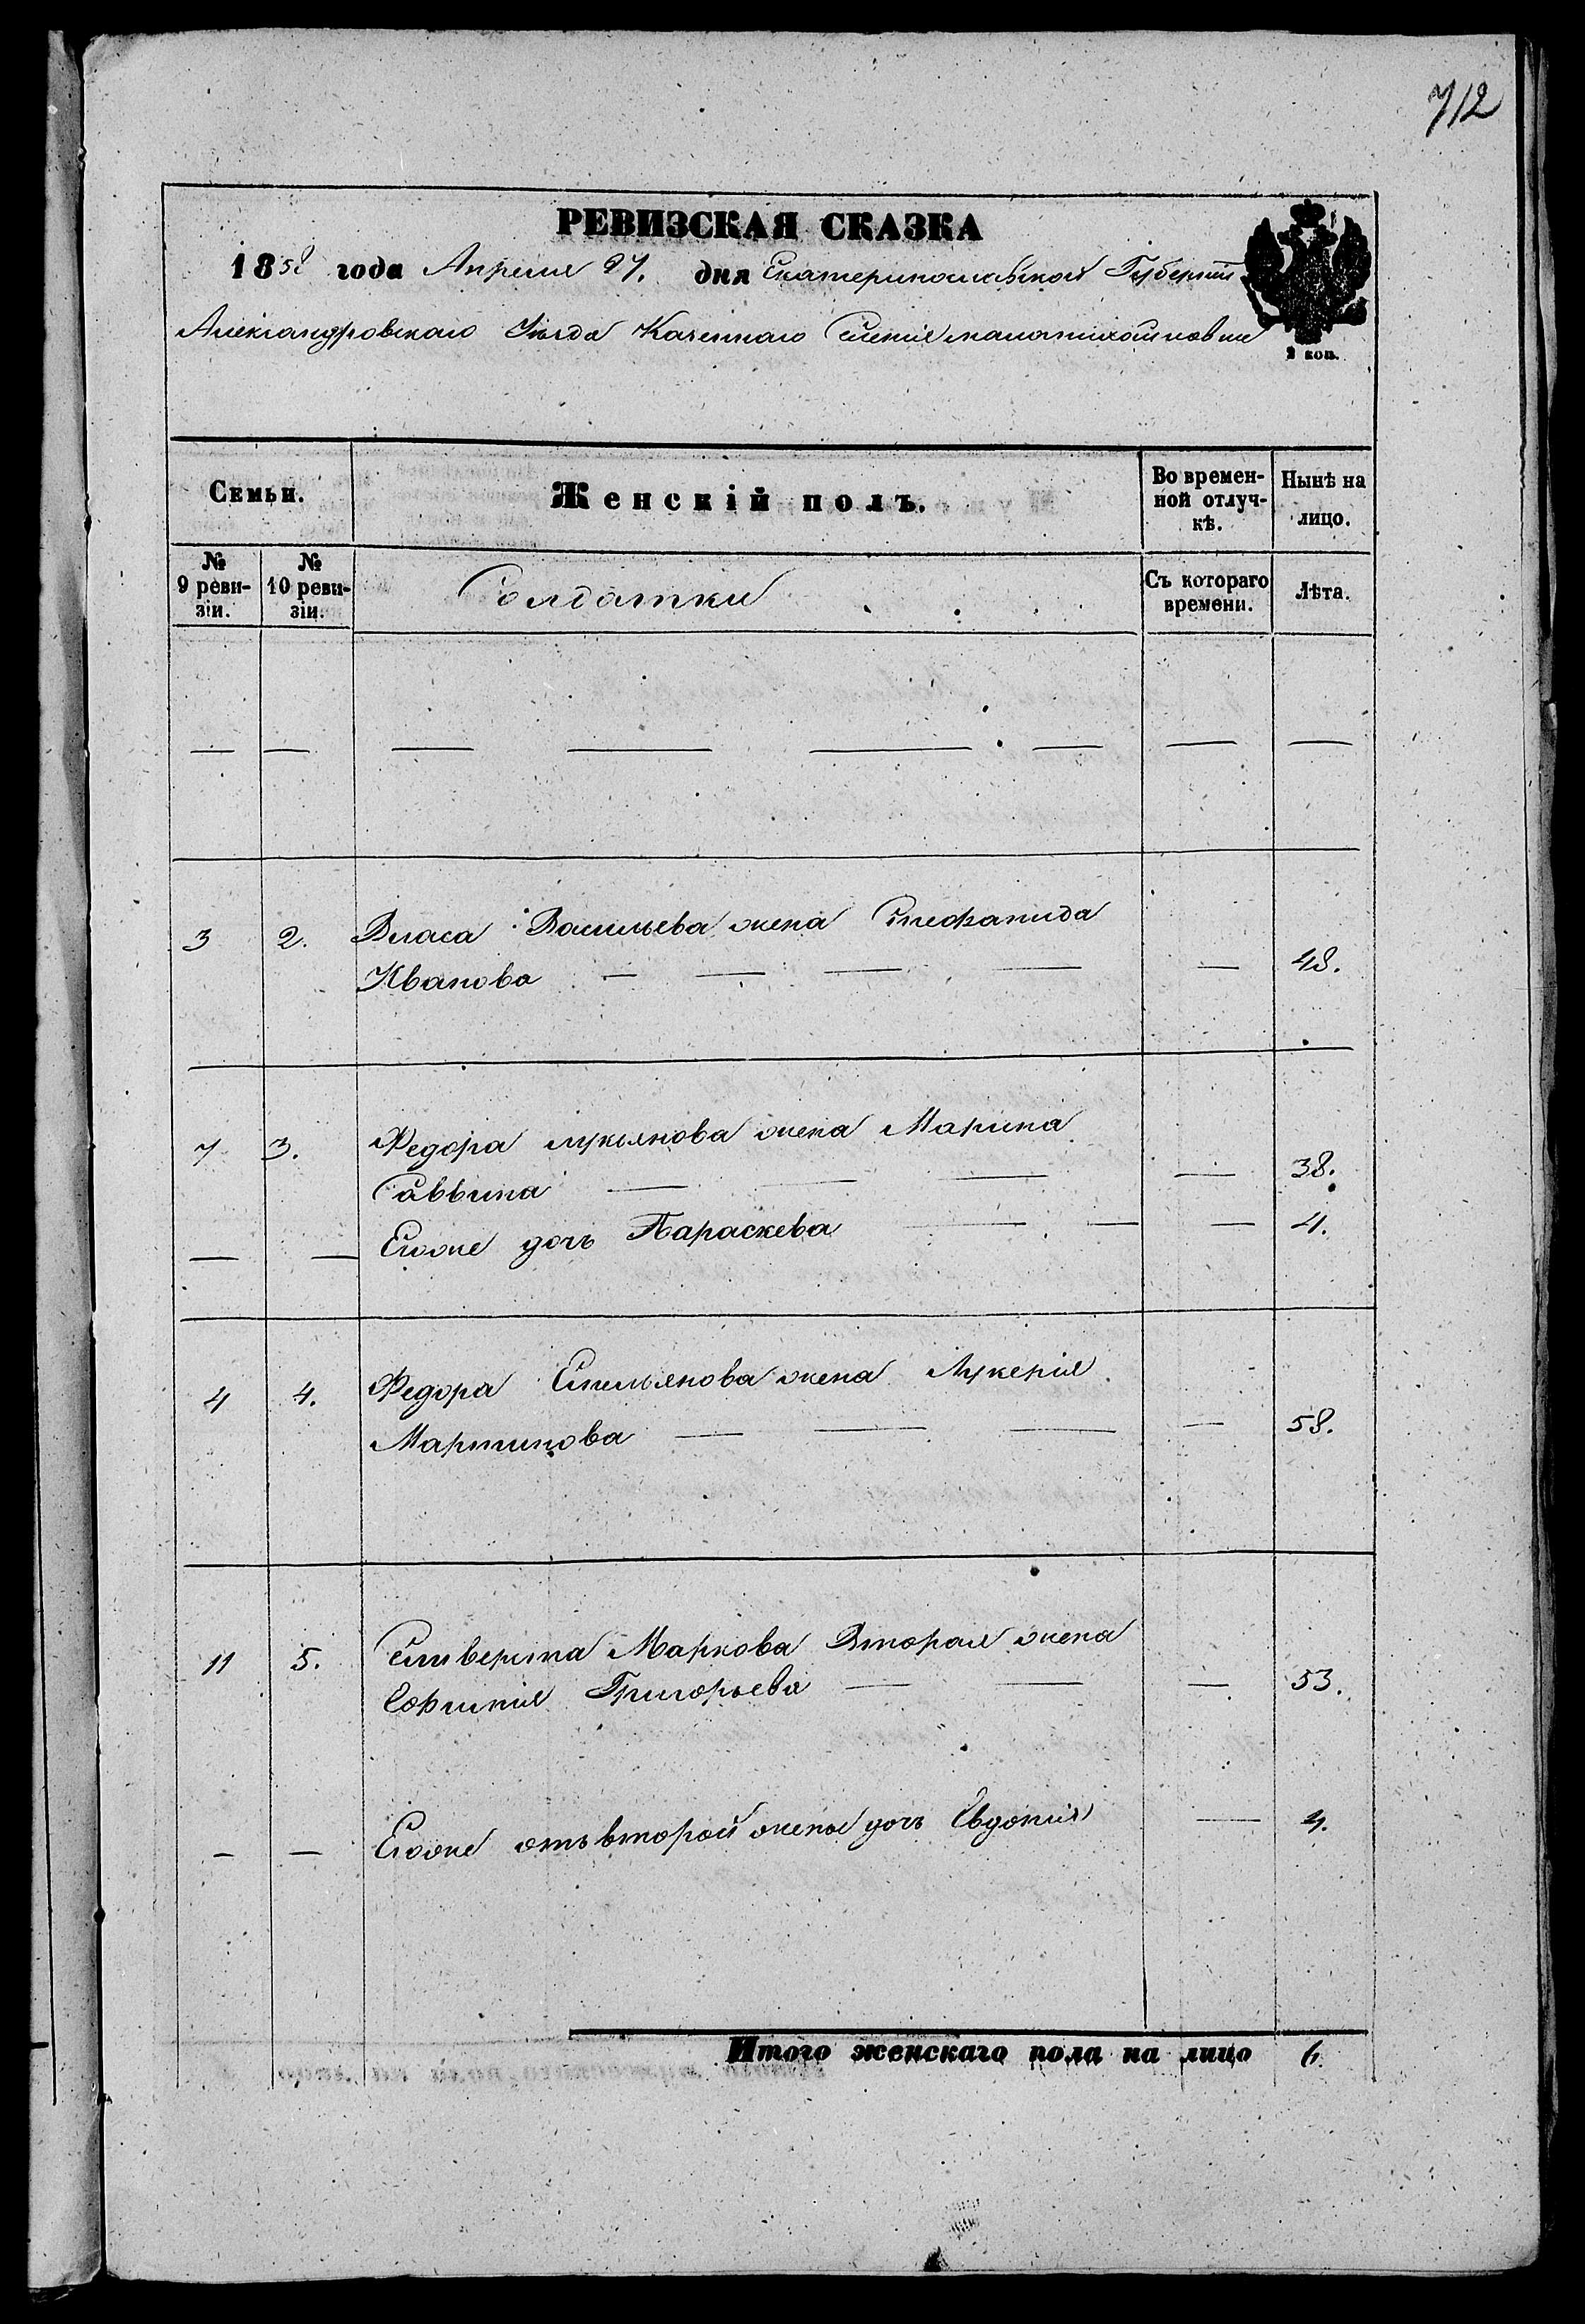 712
РЕВИЗСКАЯ СКАЗКА
1858 года Апреля 27. дня Екатеринославской Губерніи
Александровскаго Уѣзда Казеннаго Селенія
2 коп.
Семьи.
Женскій полъ.
Во времен-
ной отлуч-
кѣ.
Нынѣ на
лицо.
№
9 реви-
зіи.
№
10 реви-
зіи.
Солдатки
Съ котораго
времени.
Лѣта.
— — — — — — — —
3 2. Власа Васильева жена Стефанида
Иванова — — — — — 48.
7 3. Федора Лукьянова жена Марина
Саввина — — — — 38.
— — Егоже дочь Параскева — — — 4.
4 4. Федора Емельянова жена Лукерія
Мартинова — — — — 58.
11 5. Маркова Вторая жена
Григорьева — — — 53.
— — Егоже отъ второй жены дочь Евдокія — 4.
Итого женскаго пола на лицо 6.